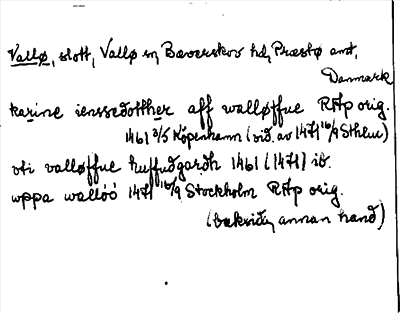 Vallø, slott, Vallø sn, Bæverskov hd, Præstø amt,
Danmark
karine ienssedotther aff walløffue RAp orig.
1461 3/5 Köpenhamn (vid. av 1471 16/9 Sthlm)
vti valløffue huffudgardh 1461 (1471) ib.
wppa wallöö 1471 16/9 Stockholm RAp orig.
(baksida, annan hand)